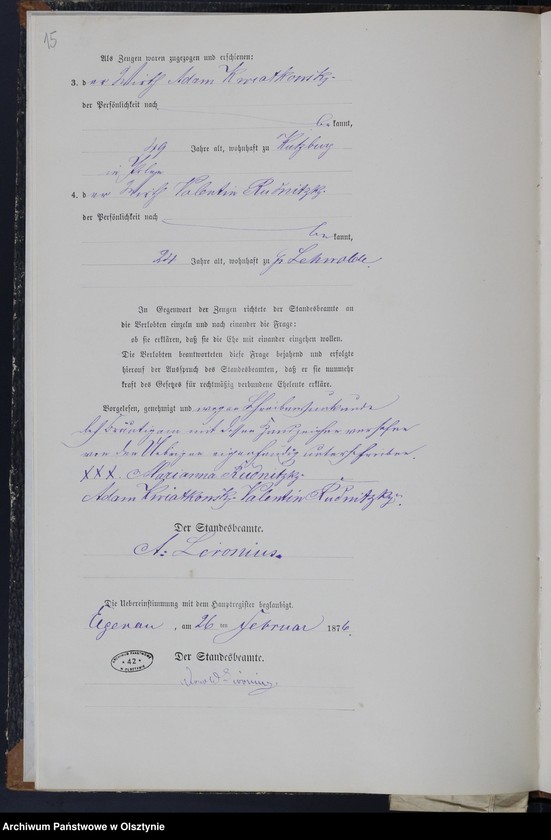 15
Als Zeugen waren zugezogen und erschienen:
3. der Wirth Adam Kwiatkowski
der Persönlichkeit nach
be kannt,
49 Jahre alt, wohnhaft zu Kutzburg
4. der Wirth Valentin Rudnitzki
der Persönlichkeit nach
be kannt,
24 Jahre alt, wohnhaft zu Gr Lehwalde.
In Gegenwart der Zeugen richtete der Standesbeamte an
die Verlobten einzeln und nach einander die Frage:
ob sie erklären, daß sie die Ehe mit einander eingehen wollen.
Die Verlobten beantworteten diese Frage bejahend und erfolgte
hierauf der Ausspruch des Standesbeamten, daß er sie nunmehr
kraft des Gesetzes für rechtmäßig verbundene Eheleute erkläre.
Vorgelesen, genehmigt und wegen Schreibensunkunde
des Bräutigams mit dessen Handzeichen versehen
von den Uebrigen eigenhändig unterschrieben.
XXX. Marianna Rudnitzki
Adam Kwiatkowski Valentin Rudnitzki.
Der Standesbeamte.
Die Uebereinstimmung mit dem Hauptregister beglaubigt.
Elgenau, am 26 ten Februar 1876.
Der Standesbeamte.
ARCHIWUM PAŃSTWOWE
* 42 *
W OLSZTYNIE
Archiwum Państwowe w Olsztynie